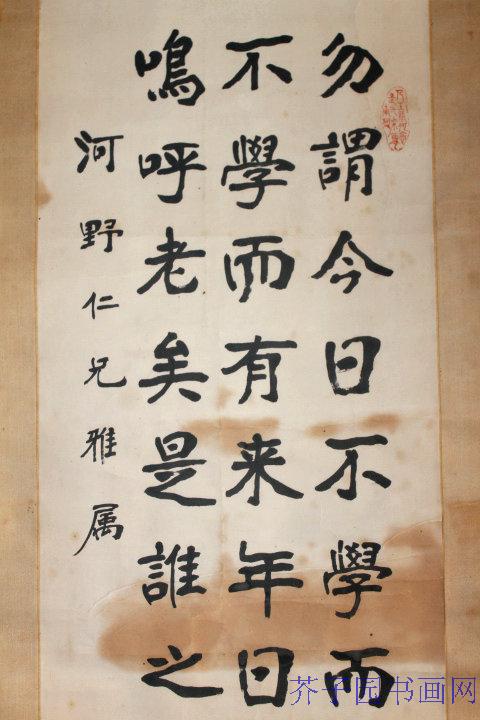 勿謂今日不學而
不學而有来年日
嗚呼老矣是誰之
河野仁兄雅属
芥子园书画网